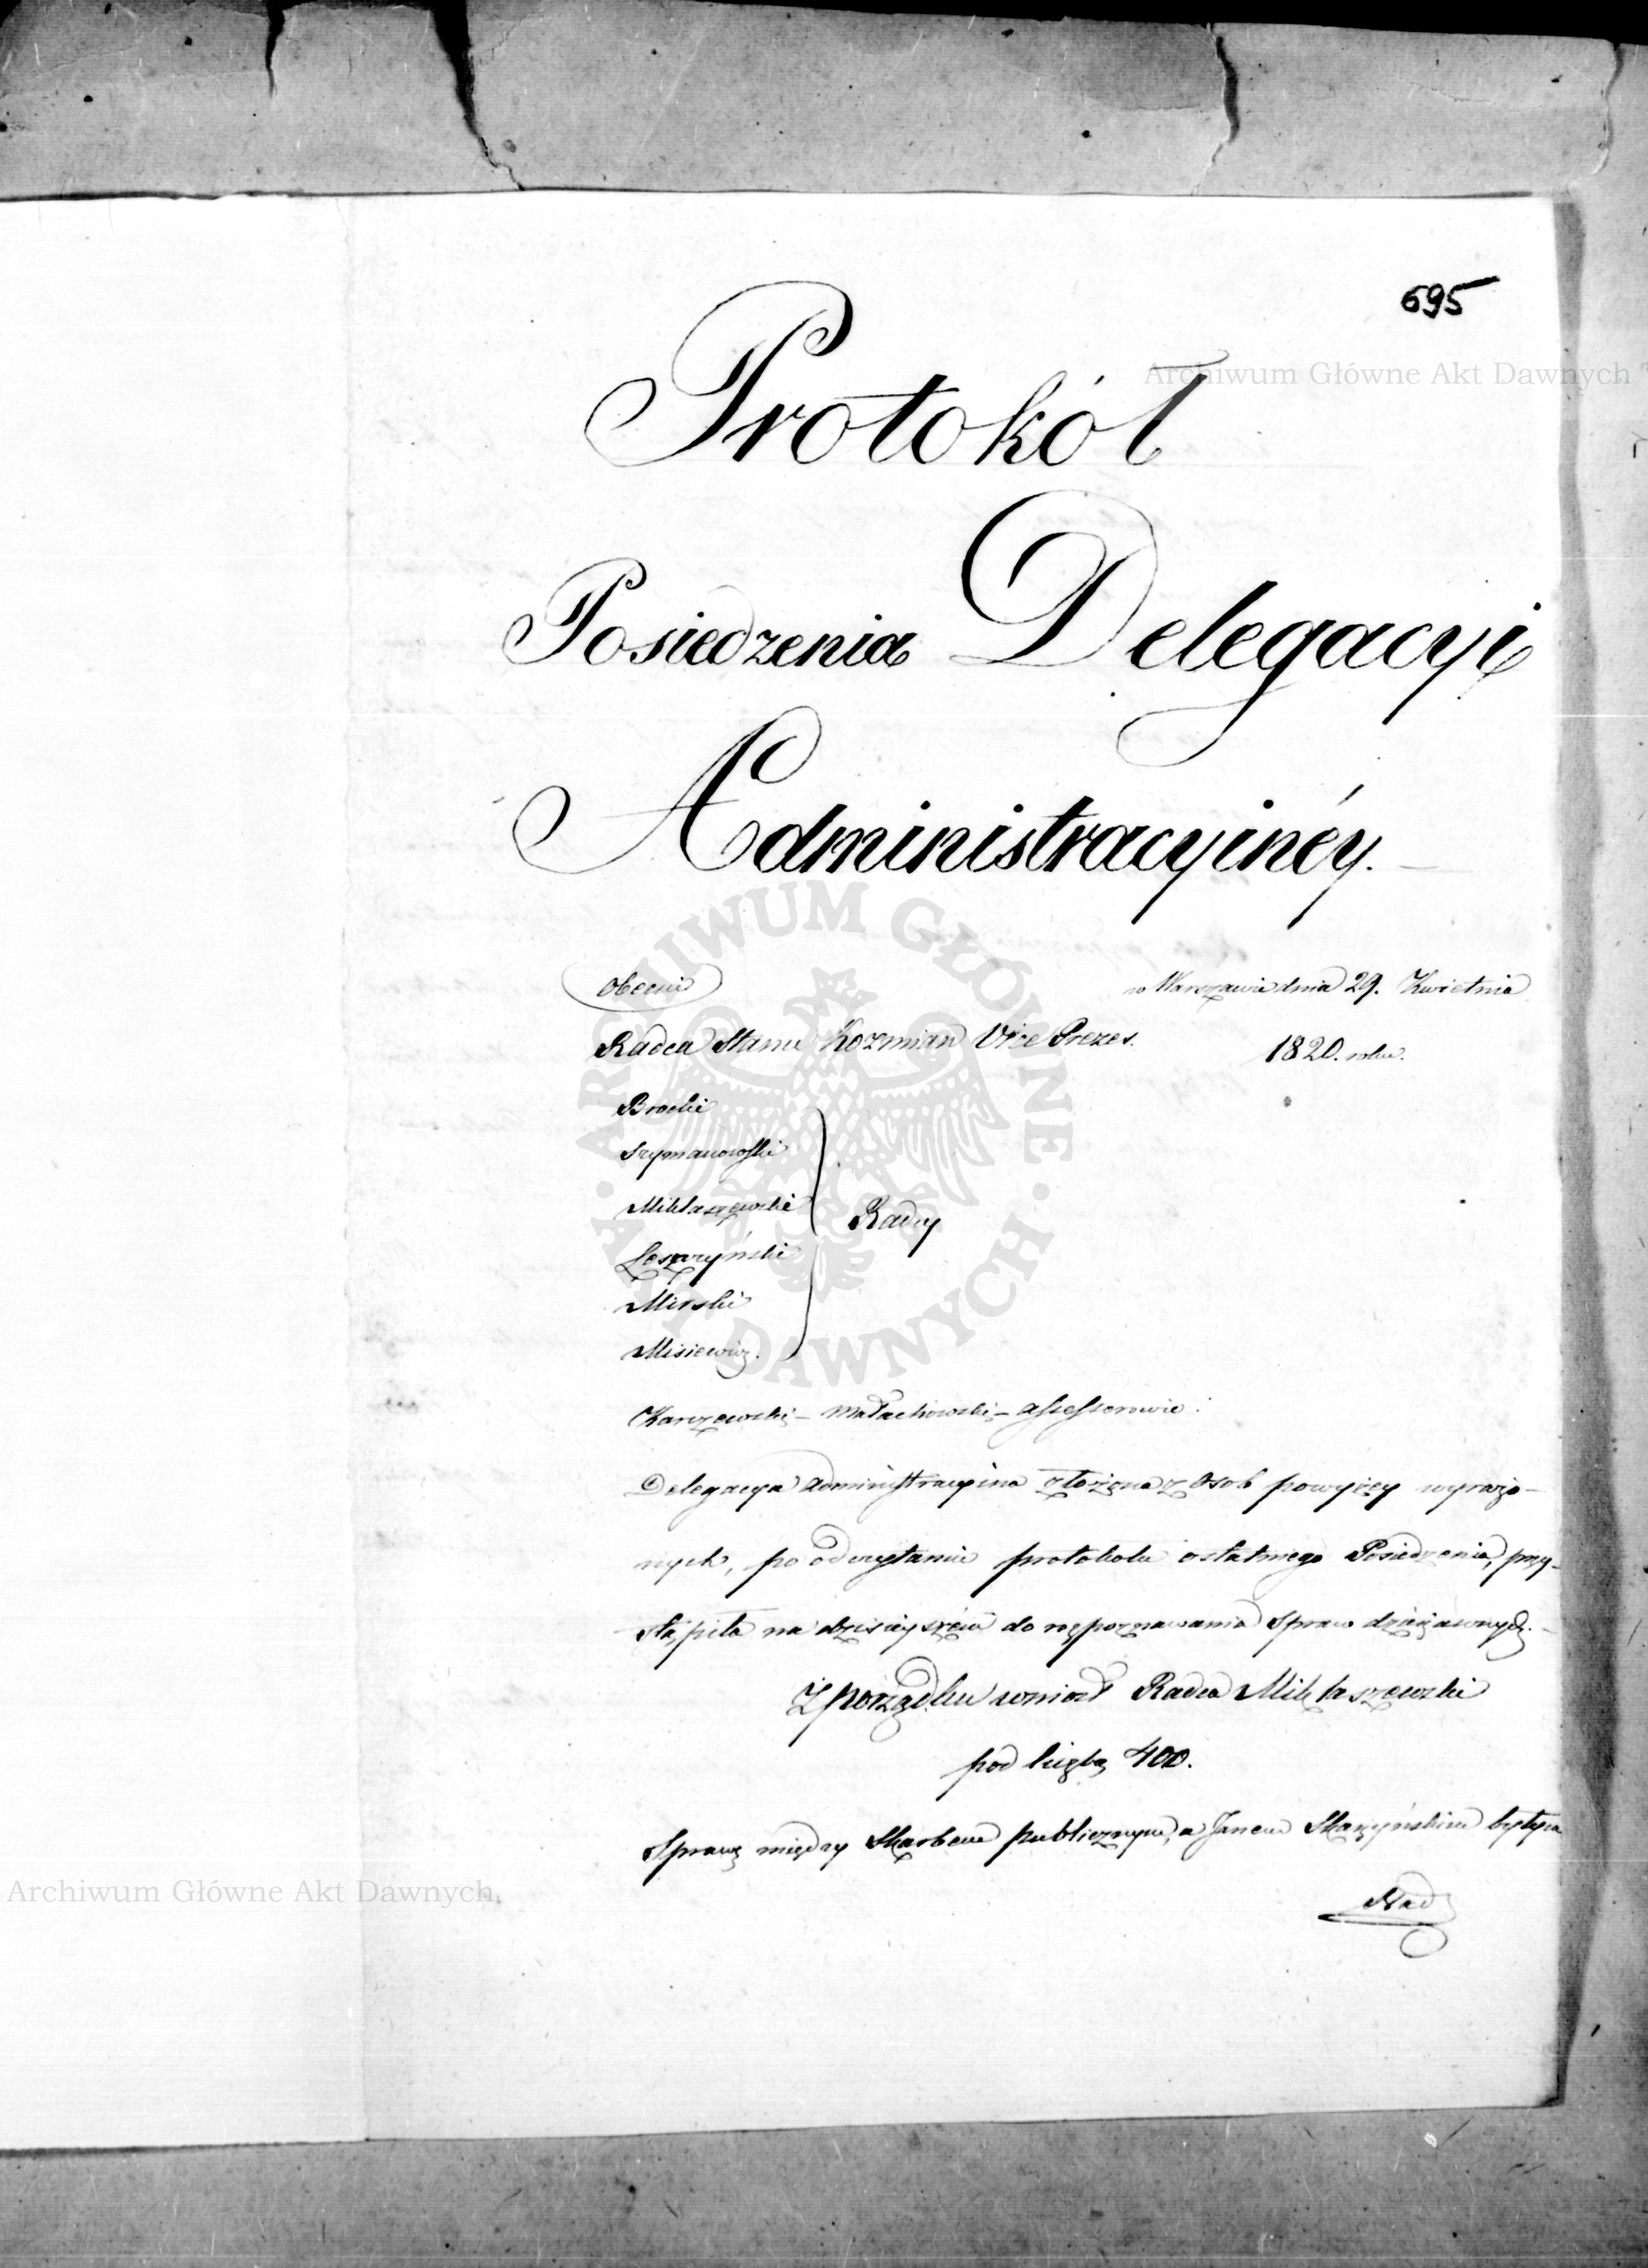 695
Archiwum Główne Akt Dawnych
Protokół
Posiedzenia Delegacyi
Administracyinéy.
Obecni
w Warszawie dnia 29. Kwietnia
Radca Stanu Kozmian Vice Prezes.
1820. roku.
Brocki
Szymanowski
Miklaszewski
Radcy
Leszczyński
Mirski
Misiewicz.
Karczewski – Małachowski – Assessorowie.
Delegacya administracyina złożona z Osob powyżey wyrażo-
nych, po odczytaniu protokołu ostatniego Posiedzenia, przy-
stąpiła na dzisieyszém do rozpoznawania Spraw dzierżawnych.
Z porządku wniosł Radca Miklaszewski
pod liczbą 400.
Sprawę między Skarbem publicznym, a Janem Skarzyńskim byłym
Nad
Archiwum Główne Akt Dawnych
ARCHIWUM GŁÓWNE AKT DAWNYCH